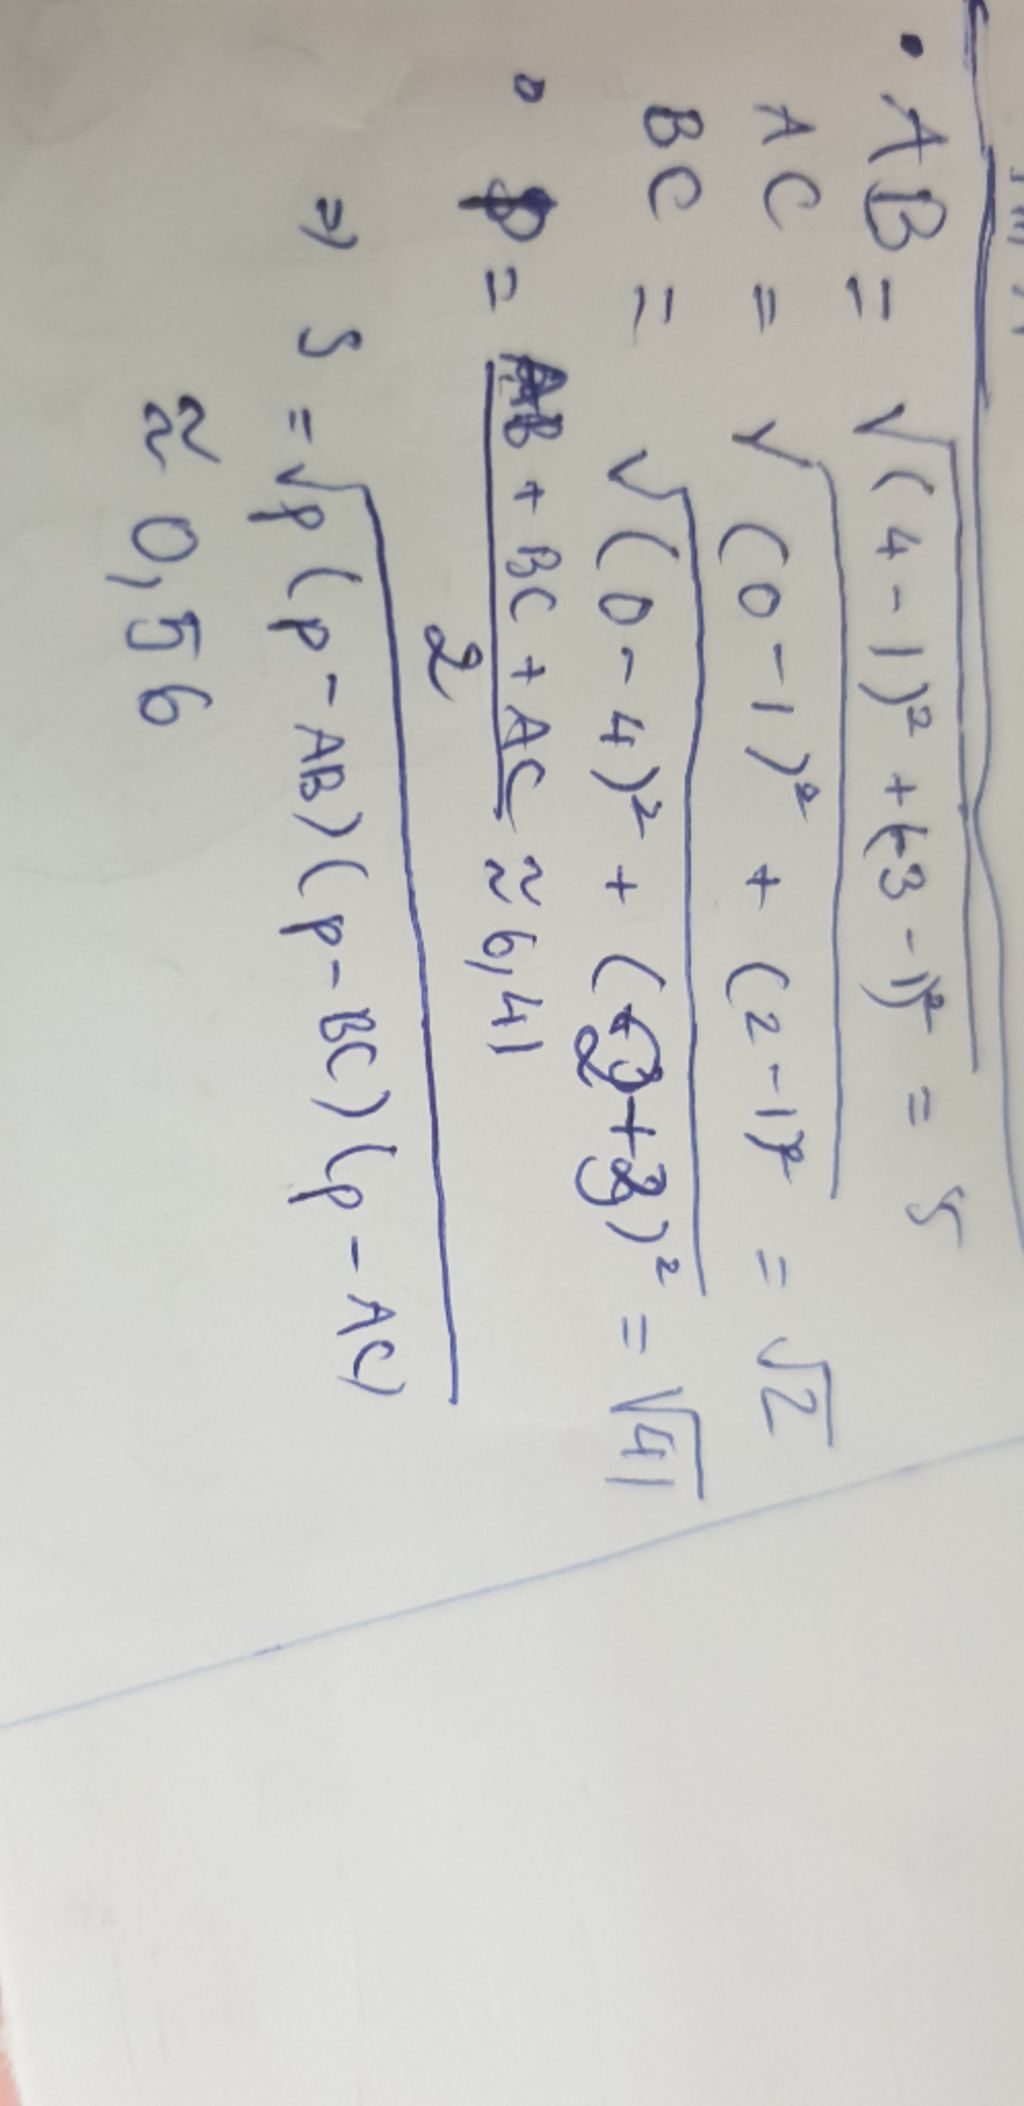 • AB = √(4-1)² + (-3-1)² = 5
AC = √(0-1)² + (2-1)² = √2
BC = √(0-4)² + (2+3)² = √41
• p = AB + BC + AC / 2 ≈ 6,41
⇒ S = √p(p-AB)(p-BC)(p-AC)
≈ 0,56